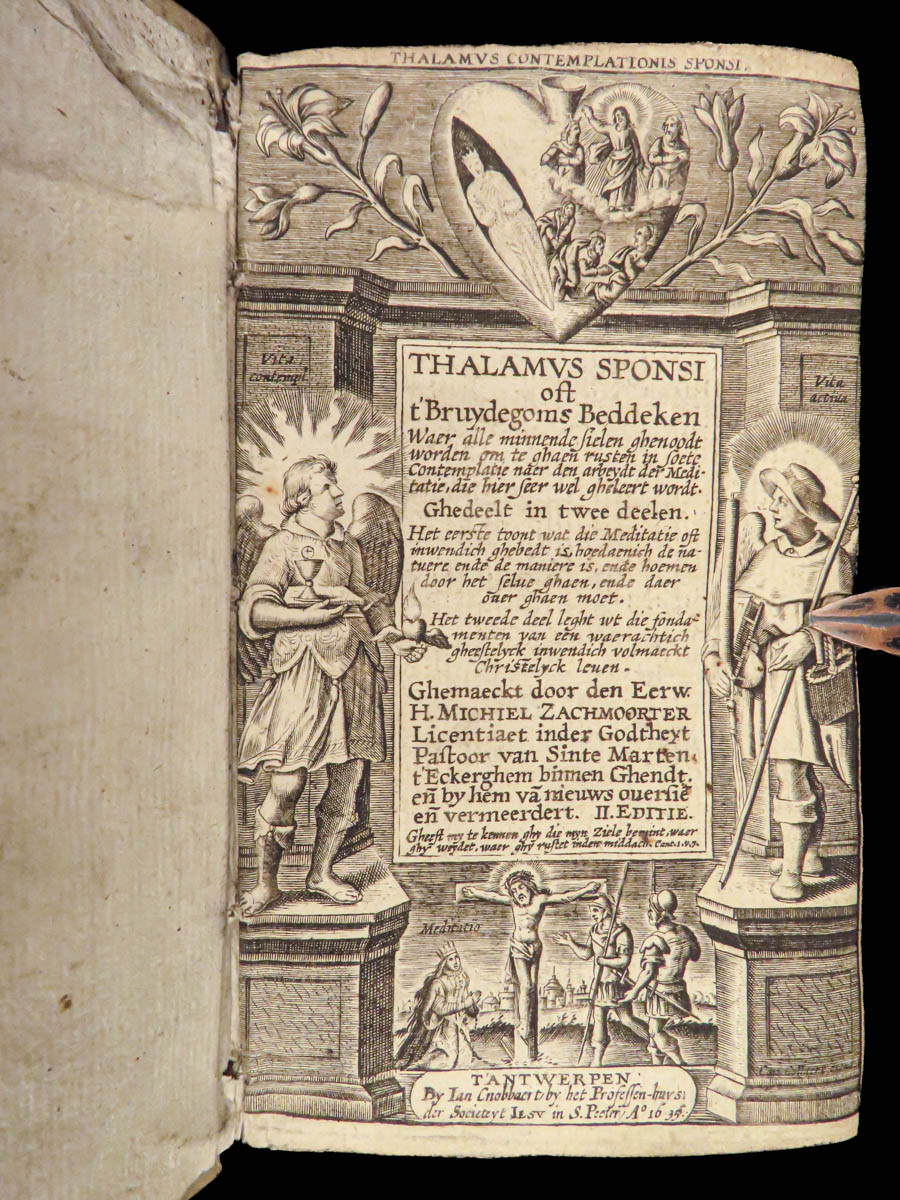 THALAMVS CONTEMPLATIONIS SPONSI.
Vita
contempl.
Vita
activa
THALAMVS SPONSI
oft
t'Bruydegoms Beddeken
Waer alle minnende sielen ghenoodt
worden om te ghaen rusten in soete
Contemplatie naer den arbeydt der Medi-
tatie, die hier seer wel gheleert wordt.
Ghedeelt in twee deelen.
Het eerste toont wat die Meditatie oft
inwendich ghebedt is, hoedaenich de na-
tuere ende de maniere is, ende hoemen
door het selue ghaen, ende daer
ouer ghaen moet.
Het tweede deel leght wt die fonda-
menten van een waerachtich
gheestelyck inwendich volmaeckt
Christelyck leuen.
Ghemaeckt door den Eerw.
H. MICHIEL ZACHMOORTER
Licentiaet inder Godtheyt
Pastoor van Sinte Marten
t'Eckerghem binnen Ghendt.
en̄ by hem vā nieuws ouersie
en̄ vermeerdert. II. EDITIE.
Gheeft my te kennen ghy die myn Ziele bemint, waer
ghy weydet, waer ghy rustet inden middach. Cant. 1. v. 7.
Meditatio
T'ANTWERPEN
By Ian Cnobbaert, by het Professen-huys
der Societeyt IESV in S. Peeter, Aº 1635.